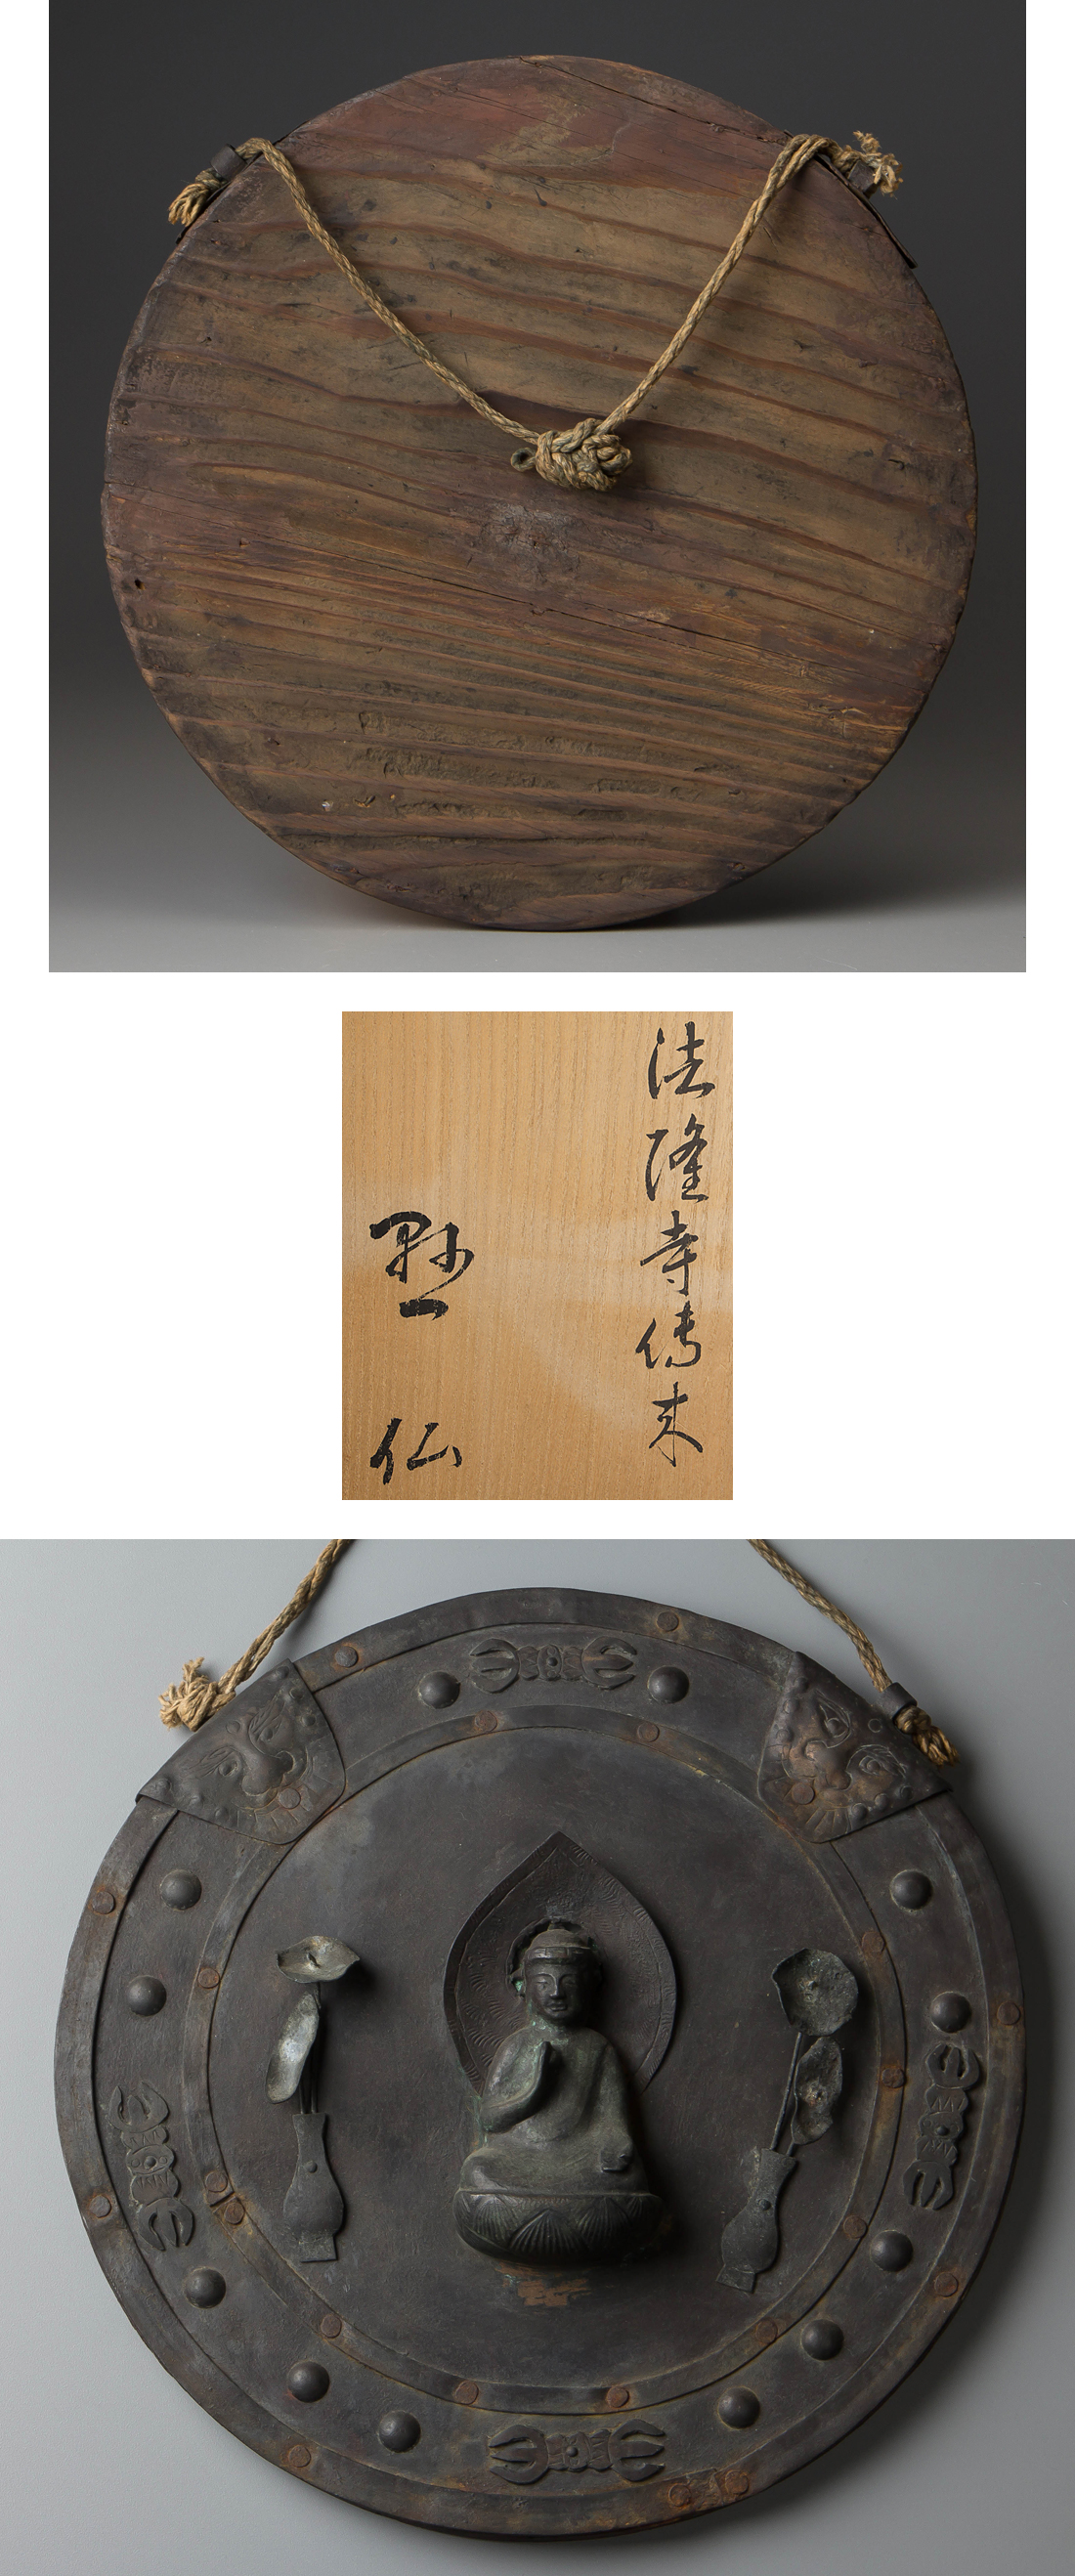 法隆寺傳来
懸仏